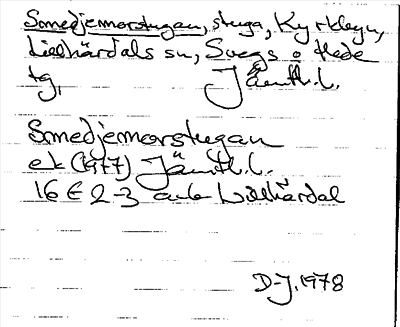 Smedjemorstugan, stuga, Kyrkbyn,
Lillhärdals sn, Svegs o Hede
tg, Jämtl.l.
Smedjemorstugan
ek (1977) Jämtl.l.
16 E 2-3 a-b Lillhärdal
D-J. 1978